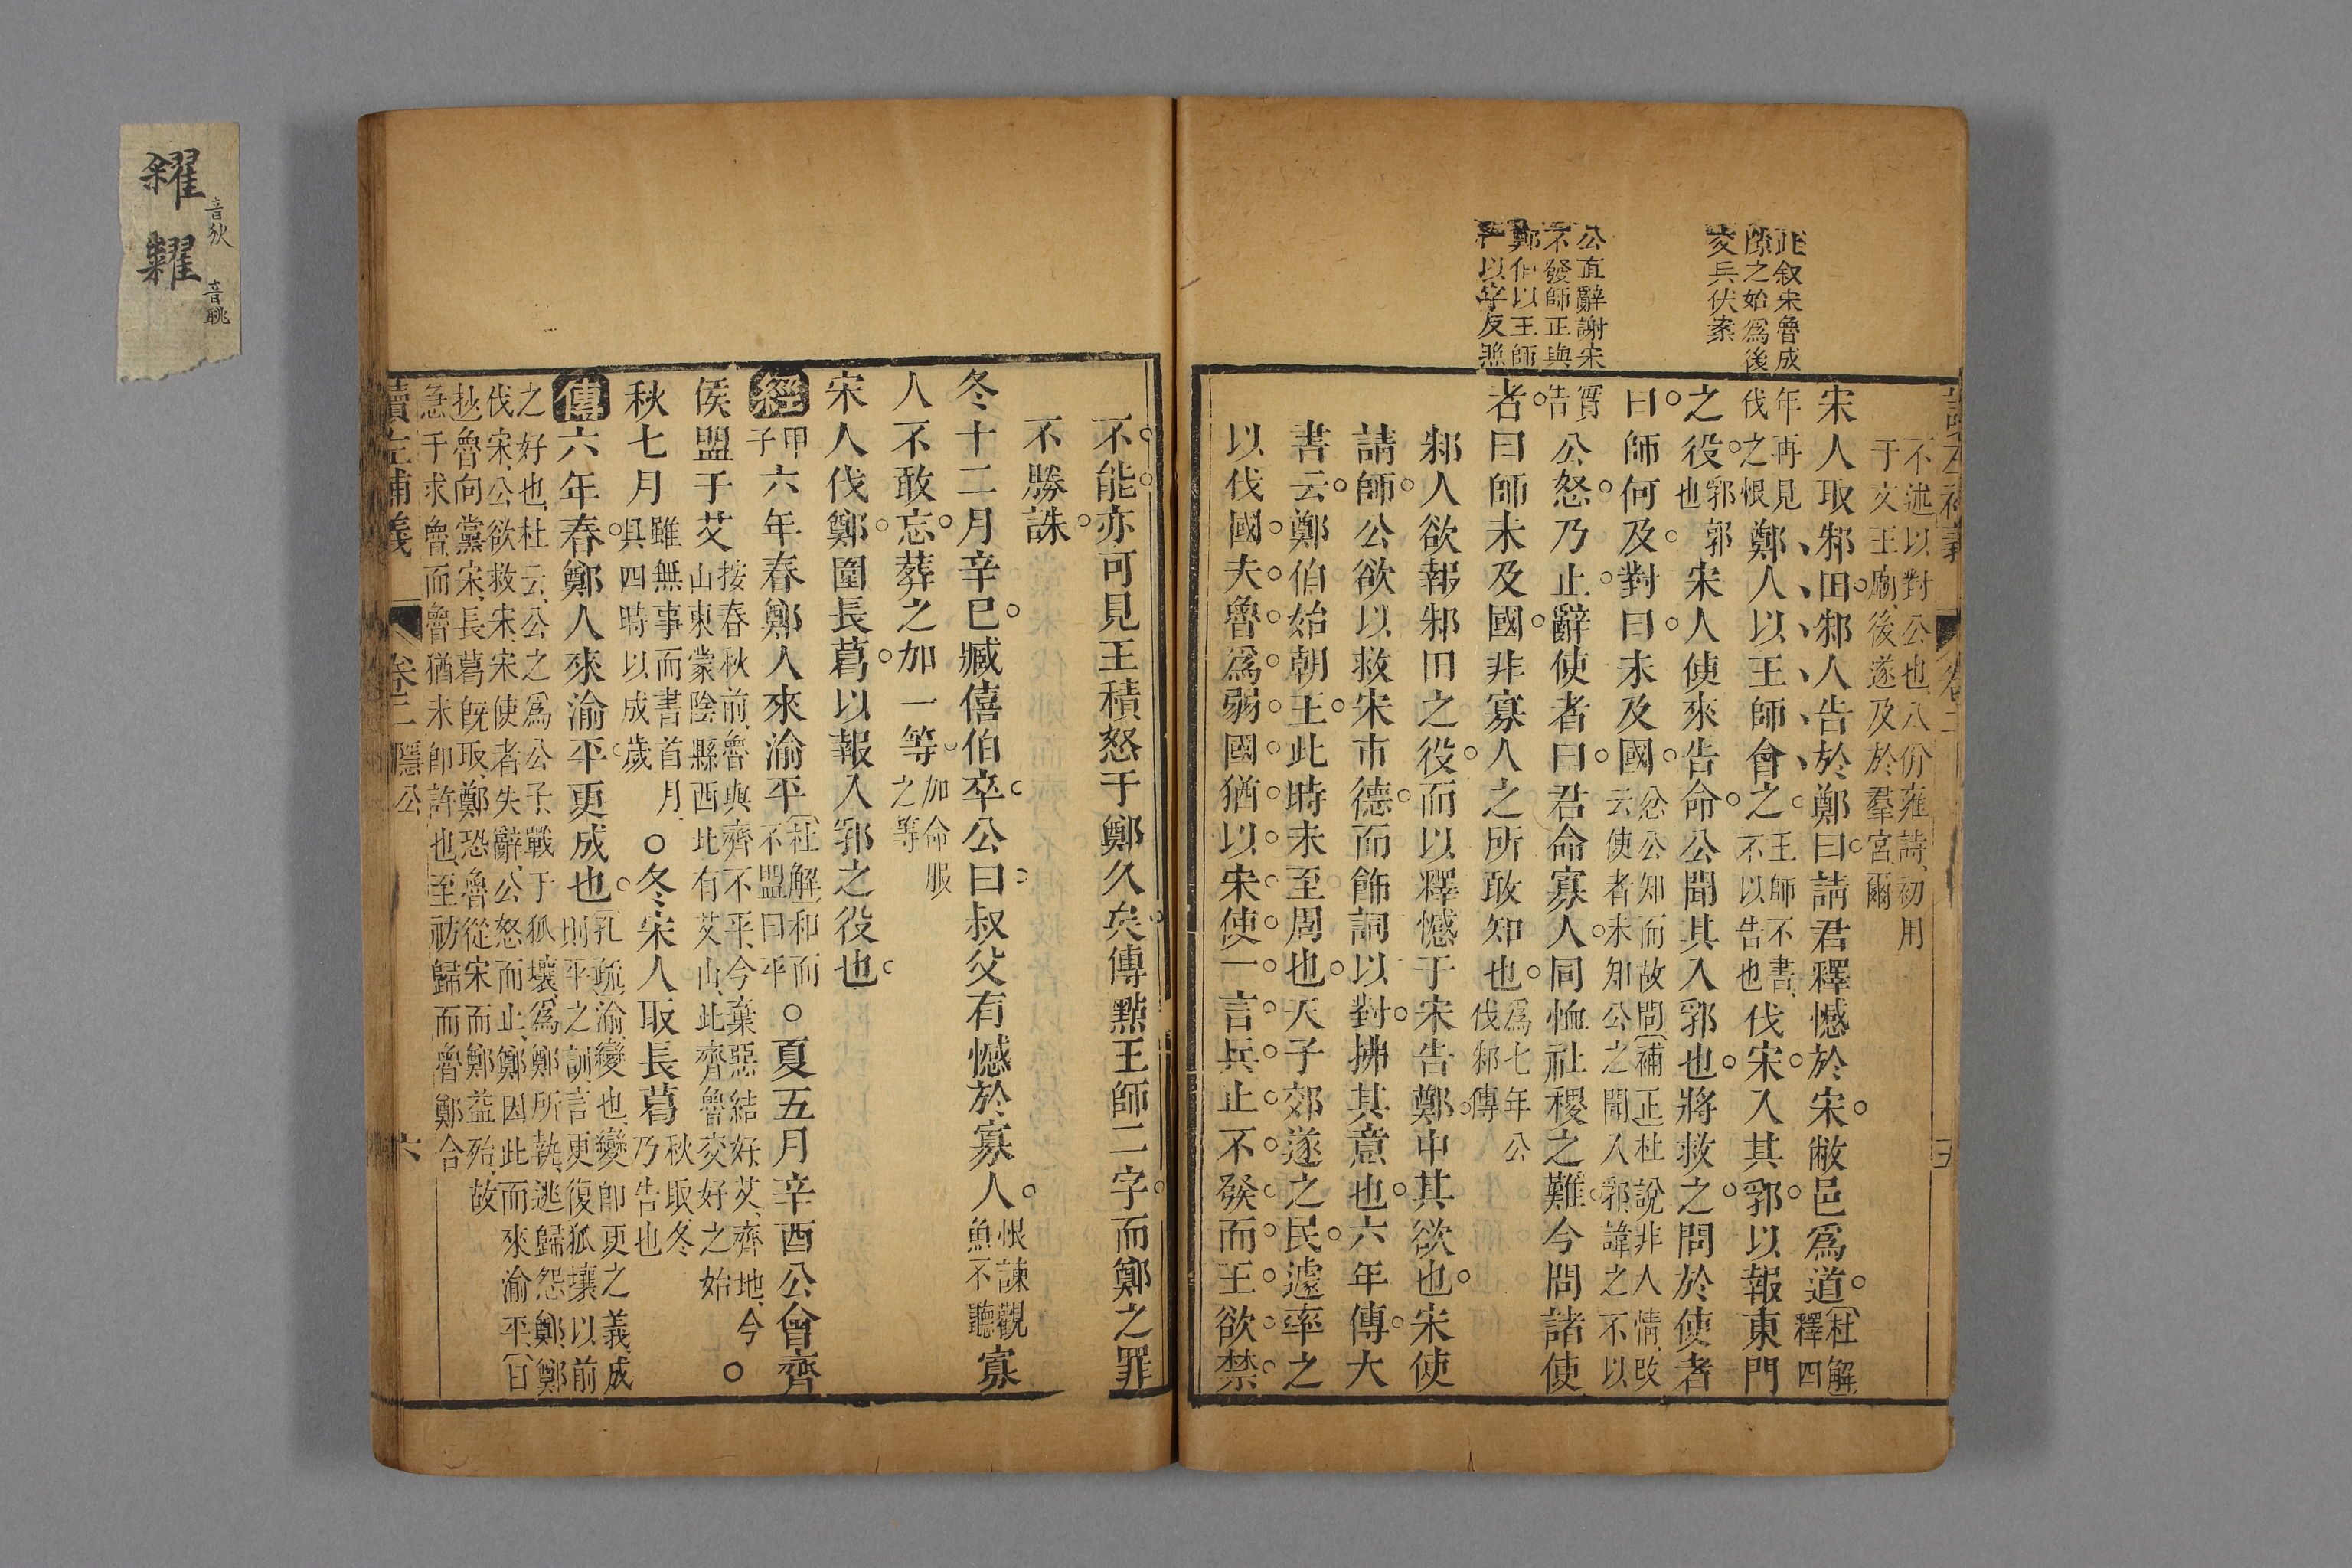 糴 音狄
糶 音眺
此叙宋魯成
隙之始爲後
交兵伏案
公直辭謝宋
不發師正與
鄭伯以王師
以字反照
讀左補義 卷二 五
不述以對公也八佾雍詩初用
于文王廟後遂及於羣宮爾
宋人取邾田邾人告於鄭曰請君釋憾於宋敝邑爲道〔杜解〕釋四
年再見伐之恨鄭人以王師會之王師不書不以告也伐宋入其郛以報東門
之役郛郭也宋人使來告命公聞其入郛也將救之問於使者
曰師何及對曰未及國忿公知而故問〔補正〕杜說非人情改云使者未知公之聞入郛諱之不以
實告公怒乃止辭使者曰君命寡人同恤社稷之難今問諸使
者曰師未及國非寡人之所敢知也爲七年公伐邾傳
邾人欲報邾田之役而以釋憾于宋告鄭申其欲也宋使
請師公欲以救宋市德而飾詞以對拂其意也六年傳大
書云鄭伯始朝王此時未至周也天子郊遂之民遽率之
以伐國夫魯爲弱國猶以宋使一言兵止不發而王欲禁
不能亦可見王積怒于鄭久矣傳點王師二字而鄭之罪
不勝誅
冬十二月辛巳臧僖伯卒公曰叔父有憾於寡人恨諫觀魚不聽寡
人不敢忘葬之加一等加命服之等
宋人伐鄭圍長葛以報入郛之役也
經甲子六年春鄭人來渝平〔杜解〕和而不盟曰平○夏五月辛酉公會齊
侯盟于艾按春秋前魯與齊不平今葉惡結好艾齊地今山東蒙陰縣西北有艾山此齊魯交好之始○
秋七月雖無事而書首月具四時以成歲○冬宋人取長葛秋取冬乃告也
傳六年春鄭人來渝平更成也〔孔疏〕渝變也變卽更之義成則平之訓言更復狐壤以前
之好也杜云公之爲公子戰于狐壤爲鄭所執逃歸怨鄭鄭
伐宋公欲救宋宋使者失辭公怒而止鄭因此而來渝平〔白
抄〕魯向黨宋長葛旣取鄭恐魯從宋而鄭益殆故
急于求魯而魯猶未卽許也至祊歸而魯鄭合
讀左補義 卷二 隱公 六